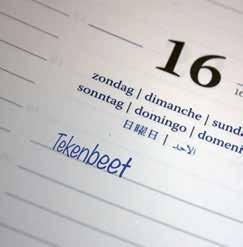 16
zondag | dimanche |
sonntag | domingo |
日曜日 | الأحد
Tekenbeet